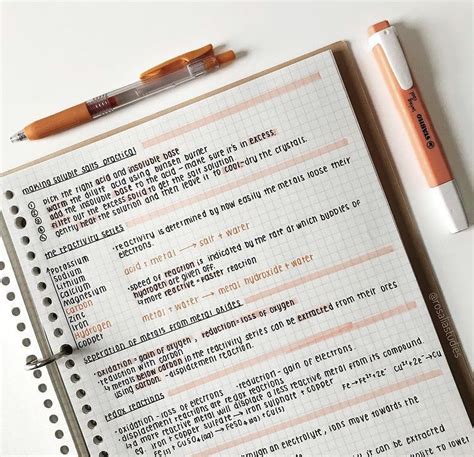 making soluble salts practical
① pick the right acid and insoluble base
② warm the dilute acid using bunsen burner
③ add the insoluble base to the acid - make sure it's in excess.
④ filter our the excess solid to get the salt solution
⑤ gently heat the solution and then leave it to cool-dry the crystals.
the reactivity series
potassium
sodium
lithium
calcium
magnesium
carbon
zinc
iron
hydrogen
copper
·reactivity is determined by how easily the metals loose their
electrons.
acid + metal → salt + water
·speed of reaction is indicated by the rate at which bubbles of
hydrogen are given off.
↳ more reactive = faster reaction
metal + water → metal hydroxide + water
separation of metals from metal oxides
·oxidation = gain of oxygen , reduction = loss of oxygen
·reduction with carbon
↳ metals below carbon in the reactivity series can be extracted from their ores
using carbon - displacement reaction.
redox reactions
·oxidation - loss of electrons ·reduction - gain of electrons.
·displacement reactions are redox reactions
↳ a more reactive metal will displace a less reactive metal from its compound.
eg. iron + copper sulphate → iron sulphate + copper
through an electrolyte, ions move towards the
it can be extracted
STABILO
swing cool
@rosaliastudies